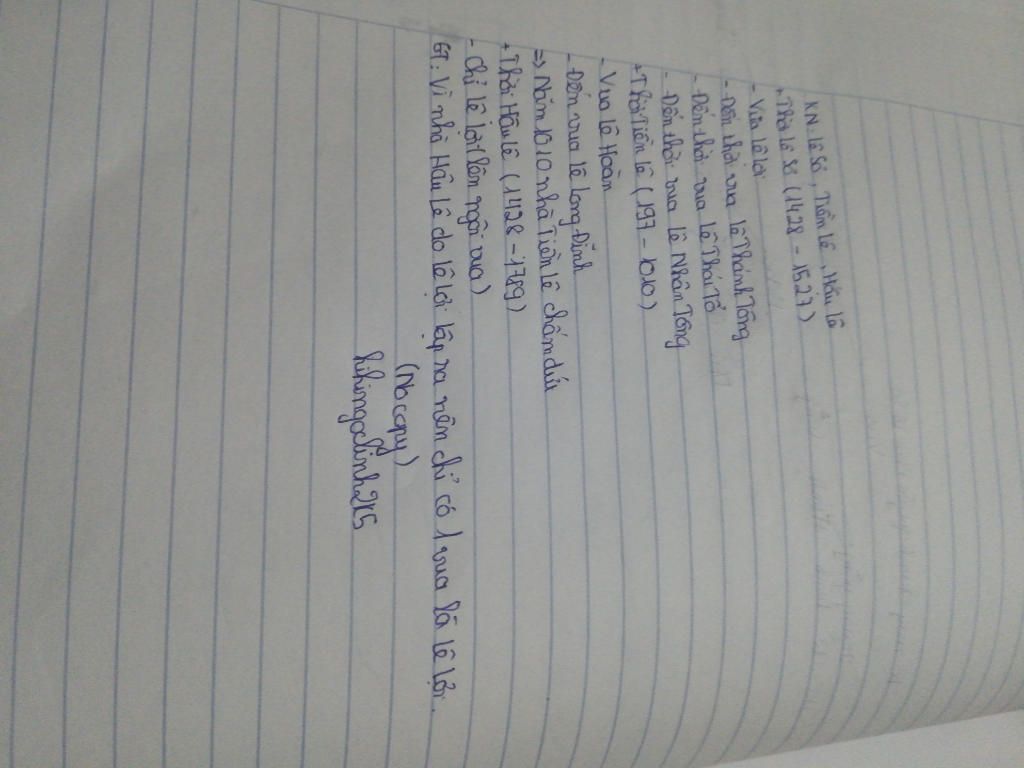 KN: Lê Sơ, Tiền Lê, Hậu Lê
+ Thời Lê Sơ (1428 - 1527)
- Vua Lê Lợi
- Đến thời vua Lê Thánh Tông
- Đến thời vua Lê Thái Tổ
- Đến thời vua Lê Nhân Tông
+ Thời Tiền Lê (197 - 1010)
- Vua Lê Hoàn
- Đến vua Lê Long Đĩnh
=> Năm 1010 nhà Tiền Lê chấm dứt
+ Thời Hậu Lê (1428 - 1789)
- Chỉ Lê Lợi (lên ngôi vua)
GT. Vì nhà Hậu Lê do Lê Lợi lập ra nên chỉ có 1 vua là Lê Lợi.
(No copy)